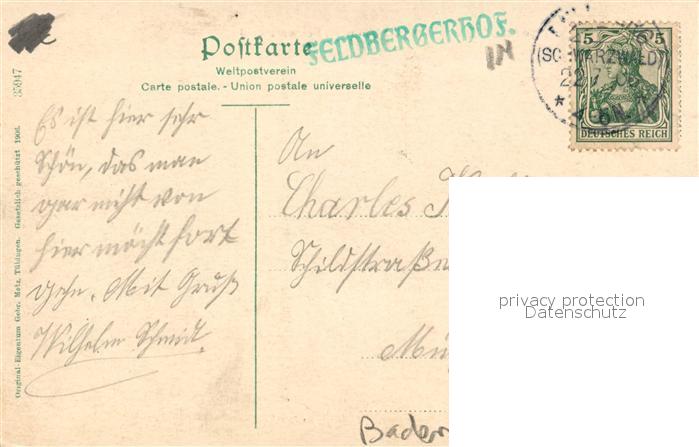 Postkarte
FELDBERGERHOF.
Weltpostverein
Carte postale. - Union postale universelle
35947
Original-Eigentum Gebr. Metz, Tübingen. Gesetzlich geschützt 1906.
5 5
DEUTSCHES REICH
(SCHWARZWALD)
Es ist hier sehr
Schön, das man
gar nicht von
hier möcht fort
gehn. Mit Gruß
Wilhelm Schmidt.
An
Charles
Schildstraße
privacy protection
Datenschutz
Baden